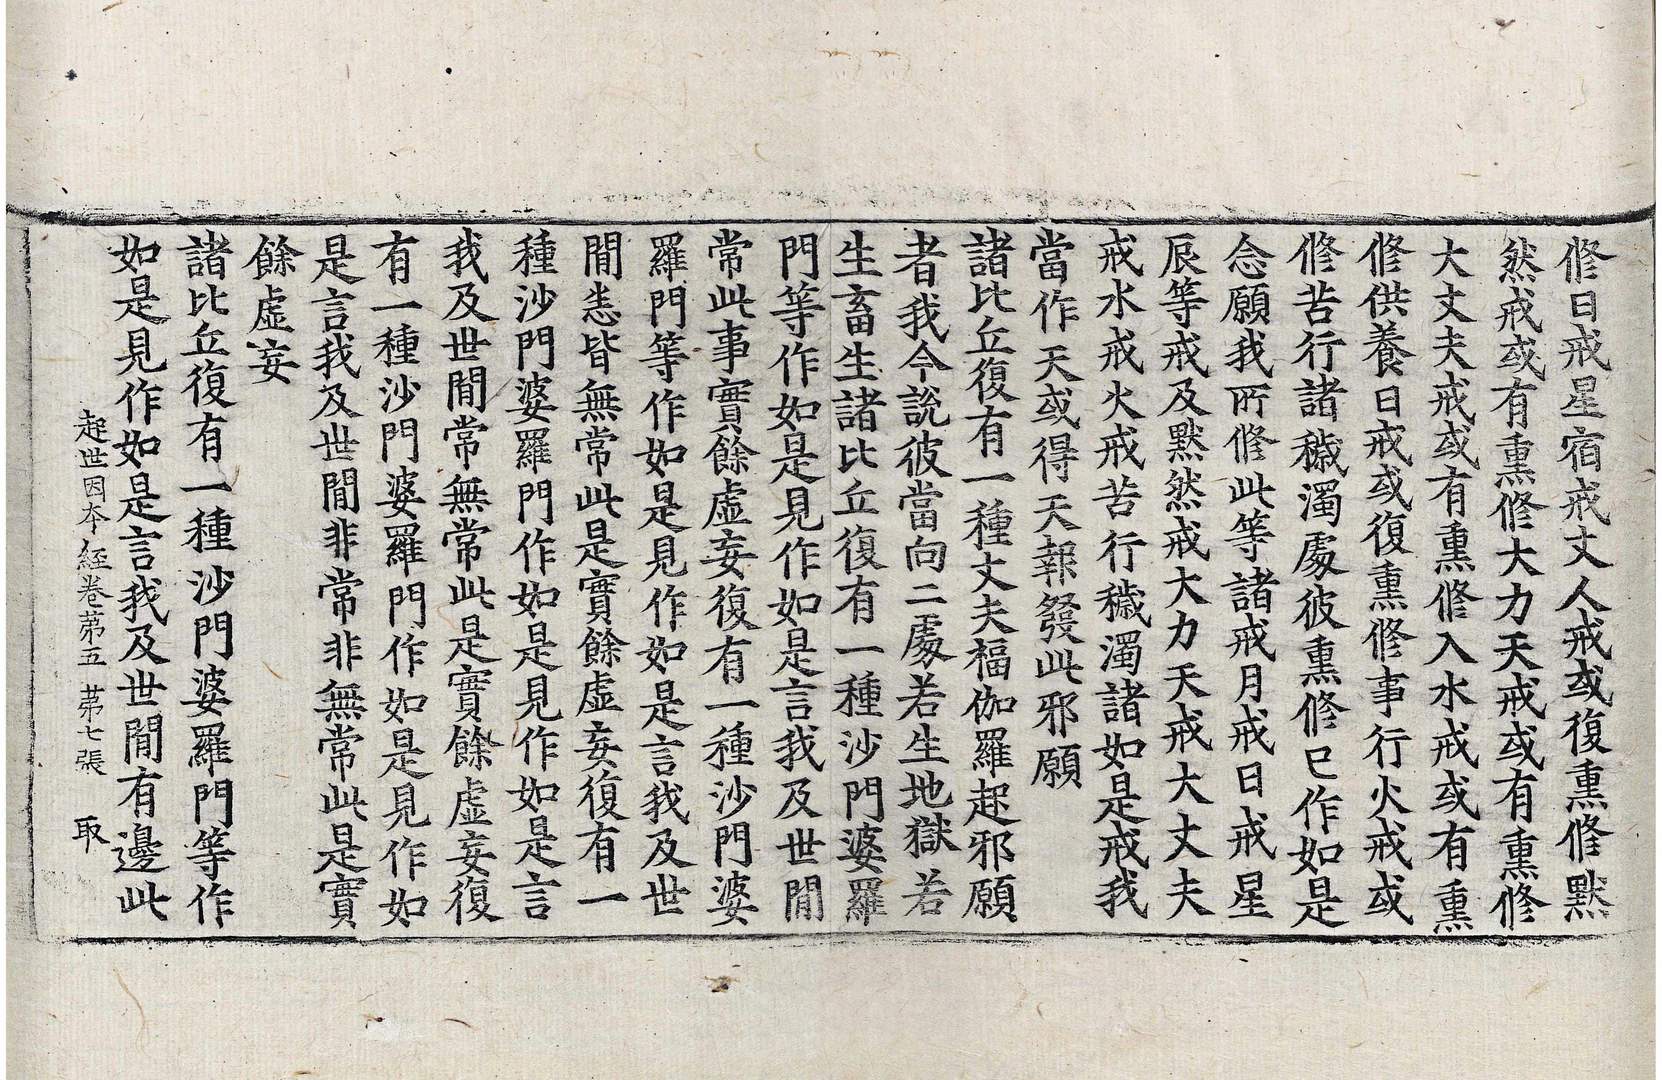 修日戒星宿戒丈人戒或復熏修黙
然戒或有熏修大力天戒或有熏修
大丈夫戒或有熏修入水戒或有熏
修供養日戒或復熏修事行火戒或
修苦行諸穢濁處彼熏修已作如是
念願我所修此等諸戒月戒日戒星
辰等戒及黙然戒大力天戒大丈夫
戒水戒火戒苦行穢濁諸如是戒我
當作天或得天報發此邪願
諸比丘復有一種丈夫福伽羅起邪願
者我今說彼當向二處若生地獄若
生畜生諸比丘復有一種沙門婆羅
門等作如是見作如是言我及世間
常此事實餘虛妄復有一種沙門婆
羅門等作如是見作如是言我及世
間悉皆無常此是實餘虛妄復有一
種沙門婆羅門作如是見作如是言
我及世間常無常此是實餘虛妄復
有一種沙門婆羅門作如是見作如
是言我及世間非常非無常此是實
餘虛妄
諸比丘復有一種沙門婆羅門等作
如是見作如是言我及世間有邊此
起世因本經卷第五 第七張 取